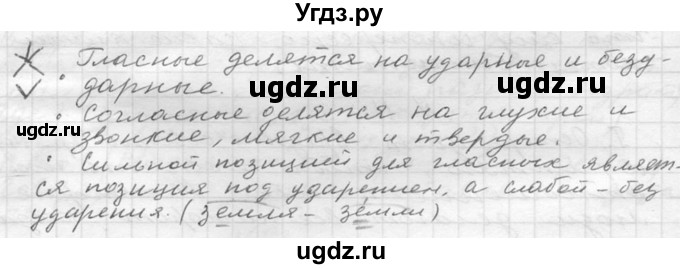 Угдз.ру
Гласные делятся на ударные и безу-
дарные.
Согласные делятся на глухие и
звонкие, мягкие и твердые.
Сильной позицией для гласных являет-
ся позиция под ударением, а слабой – без
ударения. (земля – земли)
ugdz.ru
ugdz.ru
ugdz.ru
ugdz.ru
ugdz.ru
ugdz.ru